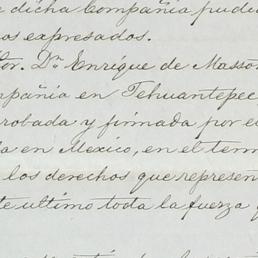 e dicha Compañia pudie
os expresados.
tor. Dn. Enrique de Masso
mpañia en Tehuantepec
robada y firmada por el
da en Mexico, en el term
los derechos que represen
te ultimo toda la fuerza q